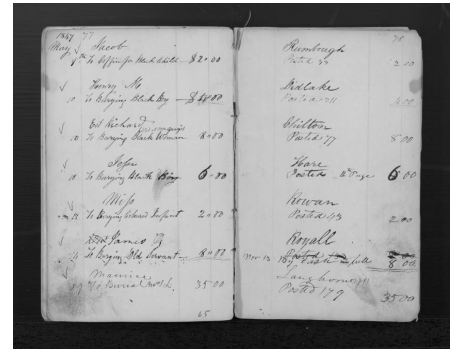 1847 77
May Jacob
7th To Coffin for Black Child — $2.00
Henry M
10 To Burying Black Boy — $4.00
Est Richard
10 To Burying Black Woman 8.00
John
11 To Burying Black Boy 6.00
Miss
12 To Burying Colored Infant 2.00
James
14 To Burying Old Servant — 8.00
Maurice
19 To Burial 35 00
65
78
Rumbough
Posted 2 00
Didlake
Posted 4 00
Chilton
Posted 77 8 00
Hare
Posted Page 6 00
Rowan
Posted 43 2 00
Royall
Nov 13 By Cash 8 00
Langhorne
Posted 179 35 00